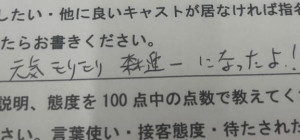 したい・他に良いキャストが居なければ指名
たらお書きください。
元気モリモリ 森進一 になったよ!!
説明、態度を100点中の点数で教えてくだ
さい。言葉使い・接客態度・待たされた